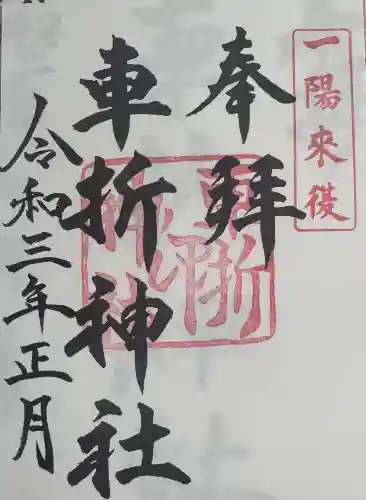 一陽来復
奉拝
車折神社
令和三年正月